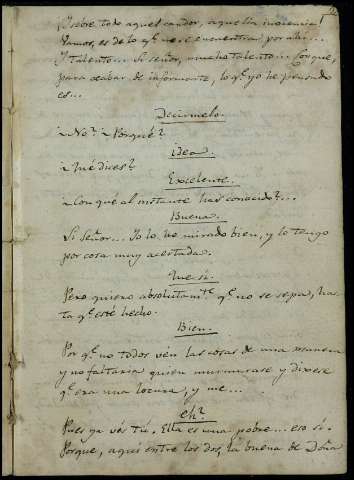 Y sobre todo aquel candor, aquella inocencia!
Vamos, es de lo q.e no se encuentra por ahi...
Y talento... Si señor, mucho talento... Conque,
para acabar de informarte, lo q.e yo he pensado
es...
Decirmelo.
¿No? ¿Porqué?
idea
¿Qué dices?
Excelente.
¿Con qué al instante has conocido?...
Buena.
Si Señor... Yo lo he mirado bien, y lo tengo
por cosa muy acertada.
Que si.
Pero quiero absolutam.te q.e no se sepa, has-
ta q.e esté hecho.
Bien.
Por q.e no todos ven las cosas de una manera
y no faltaria quien murmurase y dixese
q.e era una locura, y me...
Eh?
Pues ya vés tú. Ella es una pobre... eso si.
Porque, aqui entre los dos, la buena de Doña